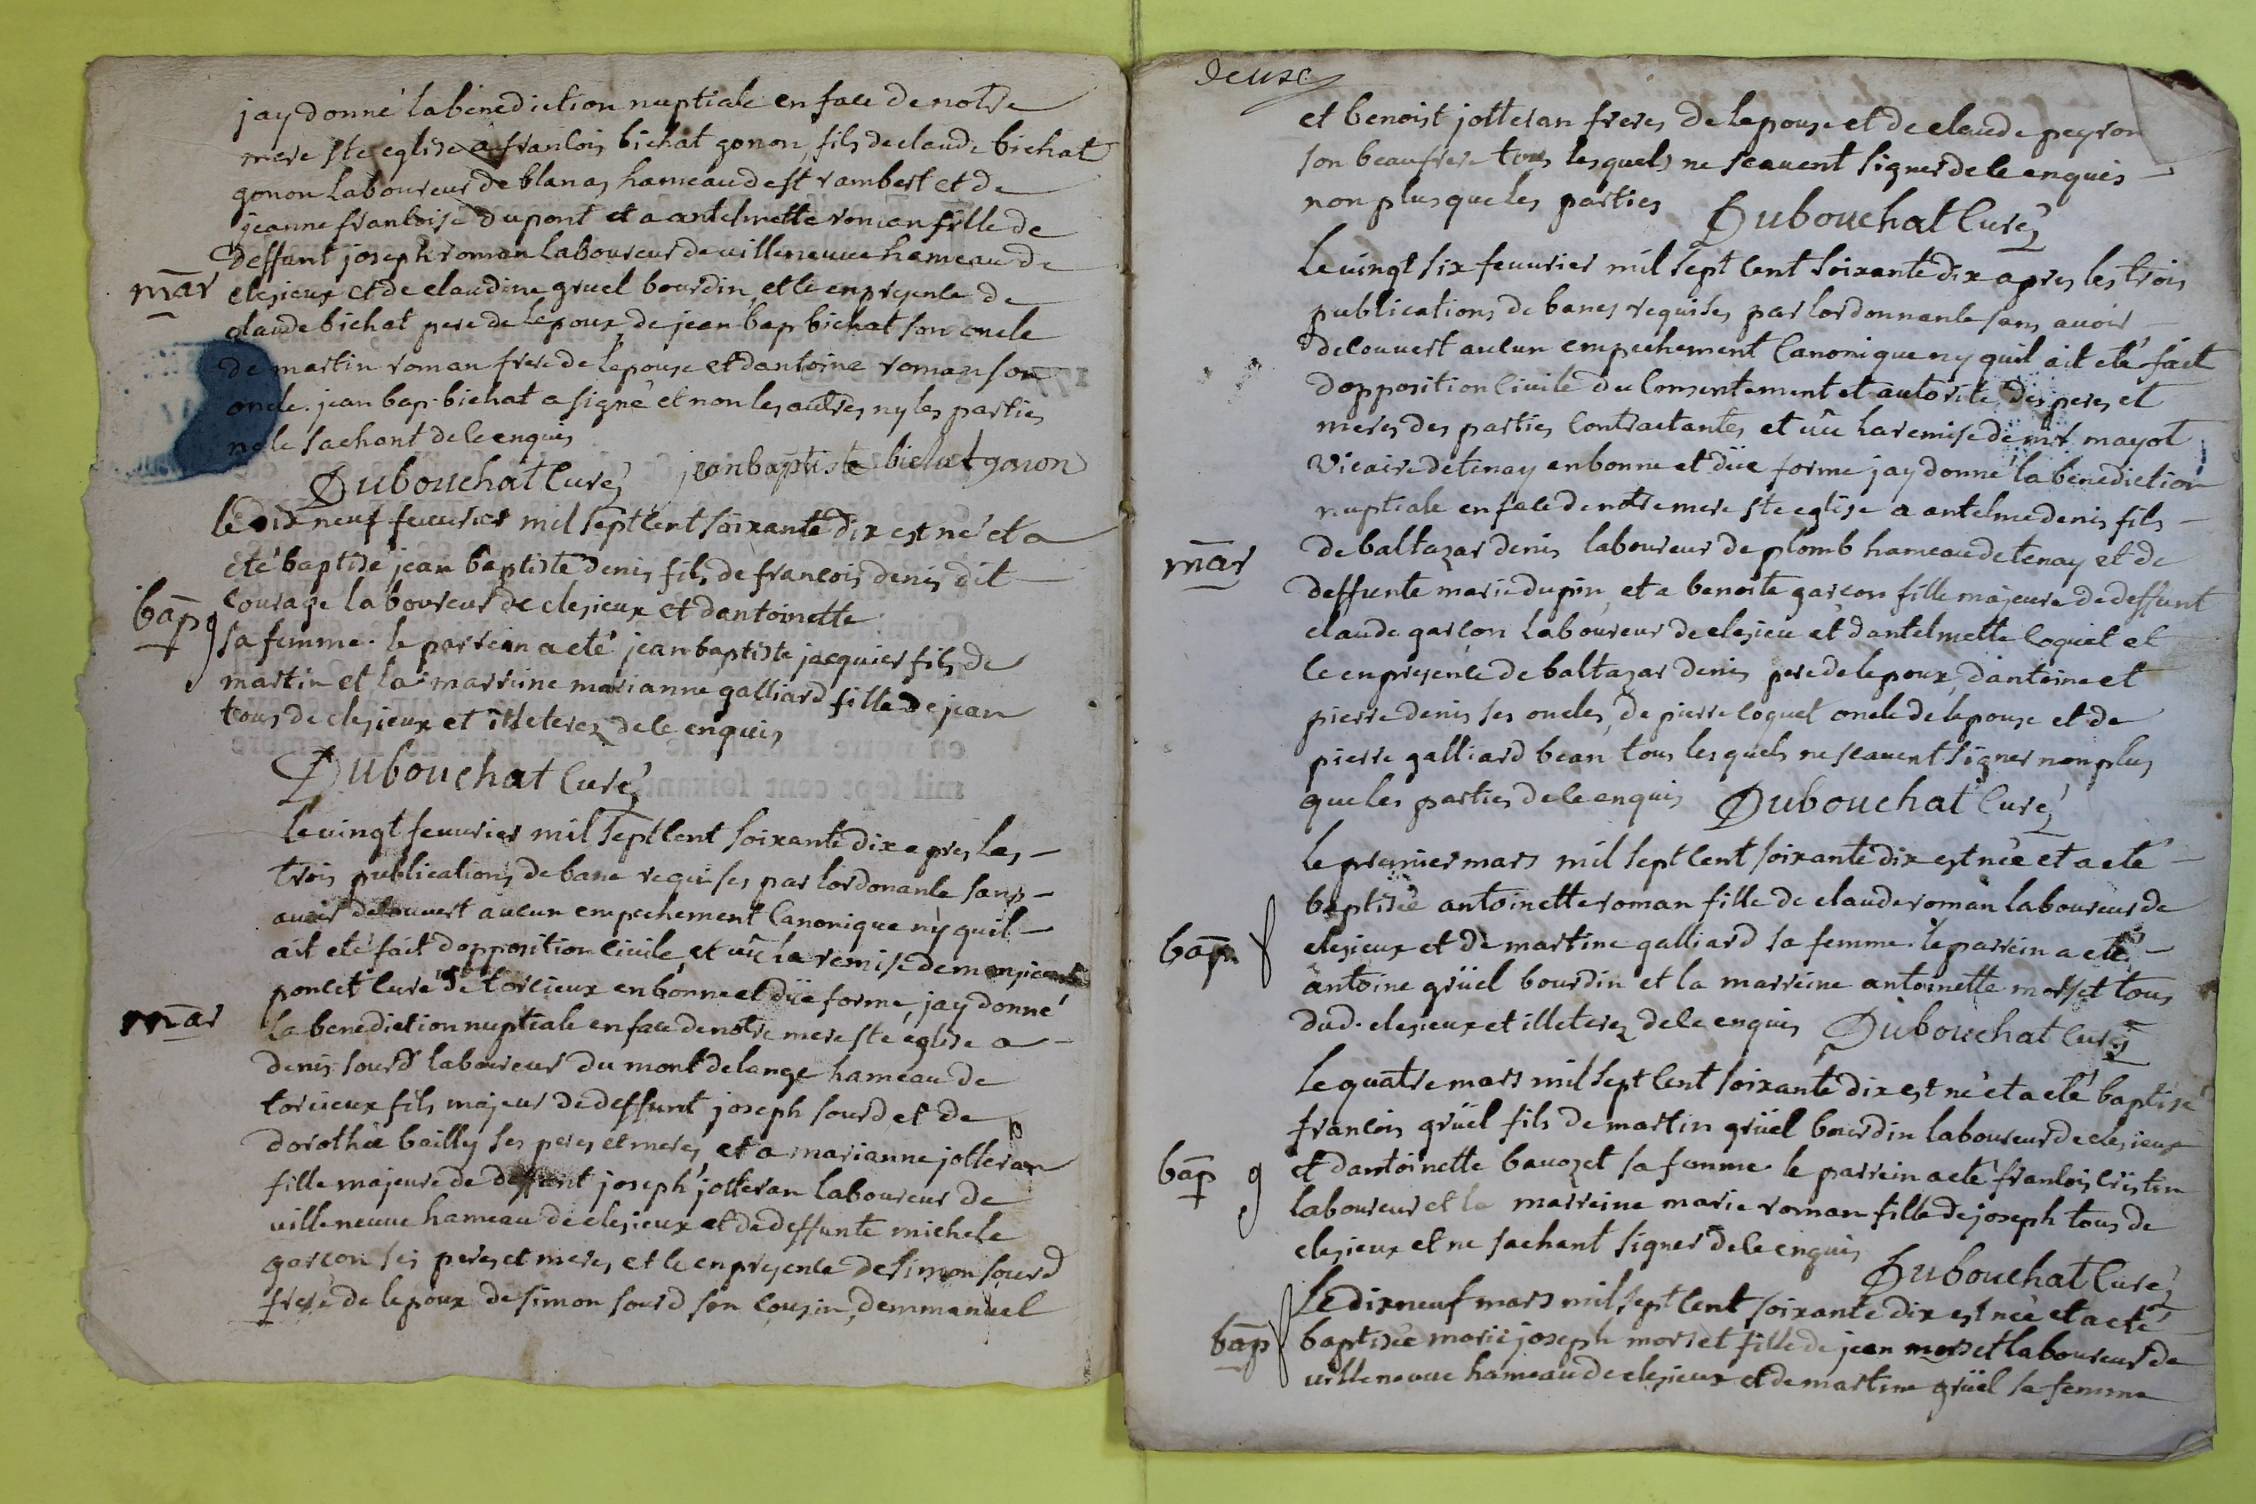 jay donné la benediction nuptiale en face de notre
mere ste eglise a francois bichat gonon, fils de claude bichat
gonon laboureur de blanas hameau de st rambert et de
jeanne francoise dupont et a antelmette roman fille de
deffunt joseph roman laboureur de villeneuve hameau de
mar
clesieux et de claudine gruel bourdin, et ce en presence de
claude bichat pere de lepoux, de jean bap bichat son oncle
de martin roman frere de lepouse et dantoine roman son
oncle. jean bap. bichat a signé et non les autres ny les parties
ne le sachant de ce enquis
Dubouchat Curé jean baptiste bichat gonon
le dix neuf feuvrier mil sept cent soixante dix est né et a
eté baptisé jean baptiste denis fils de francois denis dit
courage laboureur de clesieux et dantoinette
bap g
sa femme. le parrein a eté jean baptiste jacquier fils de
martin et la marreine marianne galliard fille de jean
tous de clesieux et illeterez de ce enquis
Dubouchat Curé
le vingt feuvrier mil sept cent soixante dix apres les
trois publications de banc requises par lordonance sans
avoir decouvert aucun empechement Canonique ny quil
ait eté fait dopposition civile, et vû la remise de
poncet Curé de torcieux en bonne et düe forme, jay donné
mar
la benediction nuptiale en face de notre mere ste eglise a
denis sourd laboureur du mont delange hameau de
torcieux fils majeur de deffunt joseph sourd et de
dorothée bailly ses peres et meres, et a marianne jotteran
fille majeure de deffunt joseph jotteran laboureur de
villeneuve hameau de clesieux et de deffunte michele
garcon ses peres et meres, et ce en presence de simon sourd
frere de lepoux de simon sourd son cousin, demmanuel
deux
et benoist jotteran freres de lepouse et de claude peyron
son beaufrere tous lesquels ne scavent signer de ce enquis
non plus que les parties Dubouchat Curé
Le vingt six feuvrier mil sept cent soixante dix apres les trois
publications de bancs requises par lordonnance sans avoir
decouvert aucun empechement Canonique ny quil ait eté fait
dopposition Civile du Consentement et autorité des peres et
meres des parties Contractantes, et vû la remise de mr mayot
Vicaire de tenay en bonne et düe forme jay donné la benediction
nuptiale en face de notre mere ste eglise a antelme denis fils
mar
de baltazar denis laboureur de plomb hameau de tenay et de
deffunte marie dupin, et a benoite garcon fille majeure de deffunt
claude garcon laboureur de clesieu et dantelmette coquet et
ce en presence de baltazar denis pere de lepoux, dantoine et
pierre denis ses oncles, de pierre coquet oncle de lepouse et de
pierre galliard bean, tous lesquels ne scavent signer non plus
que les parties de ce enquis Dubouchat Curé
le premier mars mil sept cent soixante dix est née et a eté
baptisée antoinette roman fille de claude roman laboureur de
bap. f
clesieux et de martine galliard sa femme. le parrein a eté
antoine grüel bourdin et la marreine antoinette morset tous
dud. clesieux et illeterez de ce enquis Dubouchat Curé
Le quatre mars mil sept cent soixante dix est né et a eté baptisé
francois grüel fils de martin grüel bourdin laboureur de clesieux
bap g
et dantoinette bavozet sa femme. le parrein a eté francois
laboureur et la marreine marie roman fille de joseph tous de
clesieux et ne sachant signer de ce enquis Dubouchat Curé
Le dix neuf mars mil sept cent soixante dix est née et a eté
bap f
baptisée marie joseph morset fille de jean morset laboureur de
villeneuve hameau de clesieux et de martine grüel sa femme